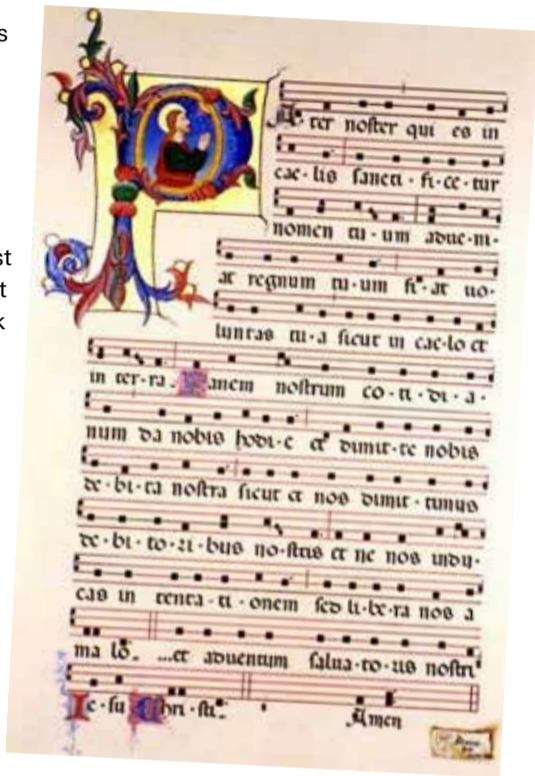 s
st
t
k
Pater noster qui es in
cae-lis sancti-fi-ce-tur
nomen tu-um adue-ni-
at regnum tu-um fi-at uo-
luntas tu-a sicut in cae-lo et
in ter-ra. Panem nostrum co-ti-di-a-
num da nobis hodi-e et dimit-te nobis
de-bi-ta nostra sicut et nos dimit-timus
de-bi-to-ri-bus no-stris et ne nos indu-
cas in tenta-ti-onem sed li-be-ra nos a
ma lo. ...et aduentum salua-to-ris nostri
Ie-su Chri-sti. Amen